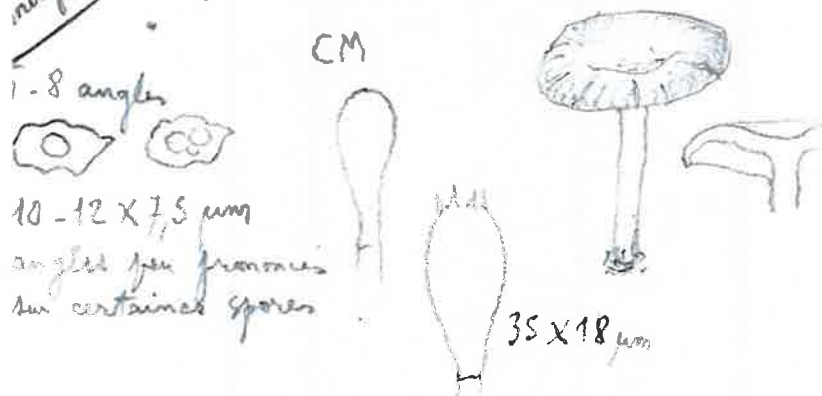 CM
- 8 angles
10 - 12 x 7,5 µm
angles peu prononcés
sur certaines spores
35 x 18 µm